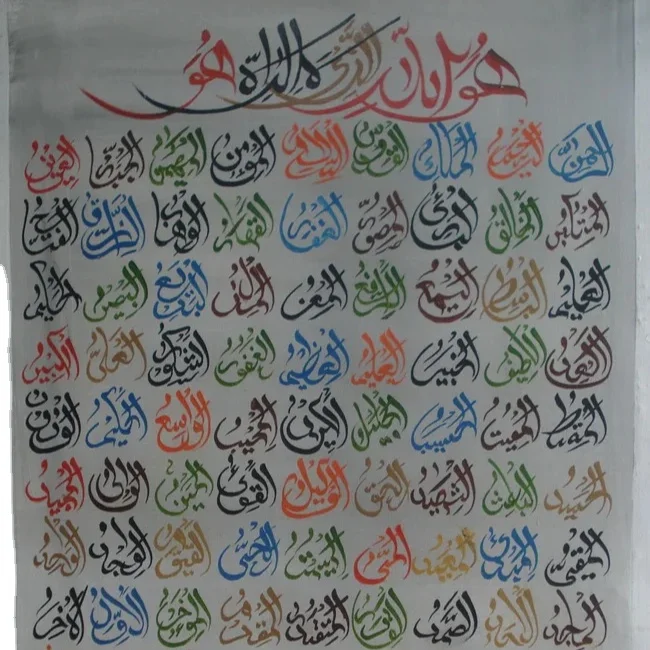 هو الله الذى لا اله الا هو
الرحمن الرحيم الملك القدوس السلام المؤمن المهيمن الجبار العزيز
المتكبر الخالق البارئ المصور القهار الوهاب الرزاق الفتاح
العليم الباسط السميع الرافع المعز المذل البصير
اللطيف الخبير العليم العظيم الغفور الشكور العلى الكبير
المقيت الحسيب الجليل الكريم المجيب الواسع الحكيم الودود
الباعث الشهيد الحق الوكيل القوى المتين الولى الحميد
المبدئ المعيد المحى المميت الحى القيوم الواجد الواحد
الماجد الصمد القادر المقتدر المقدم المؤخر الاول الاخر